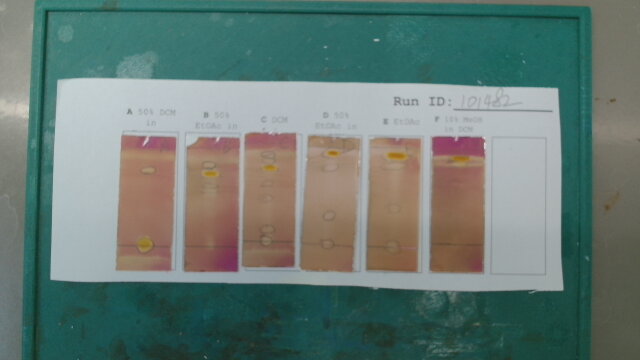 Run ID: 101482
A 50% DCM
in
B 50%
EtOAc in
C DCM
D 50%
EtOAc in
E EtOAc
F 10% MeOH
in DCM